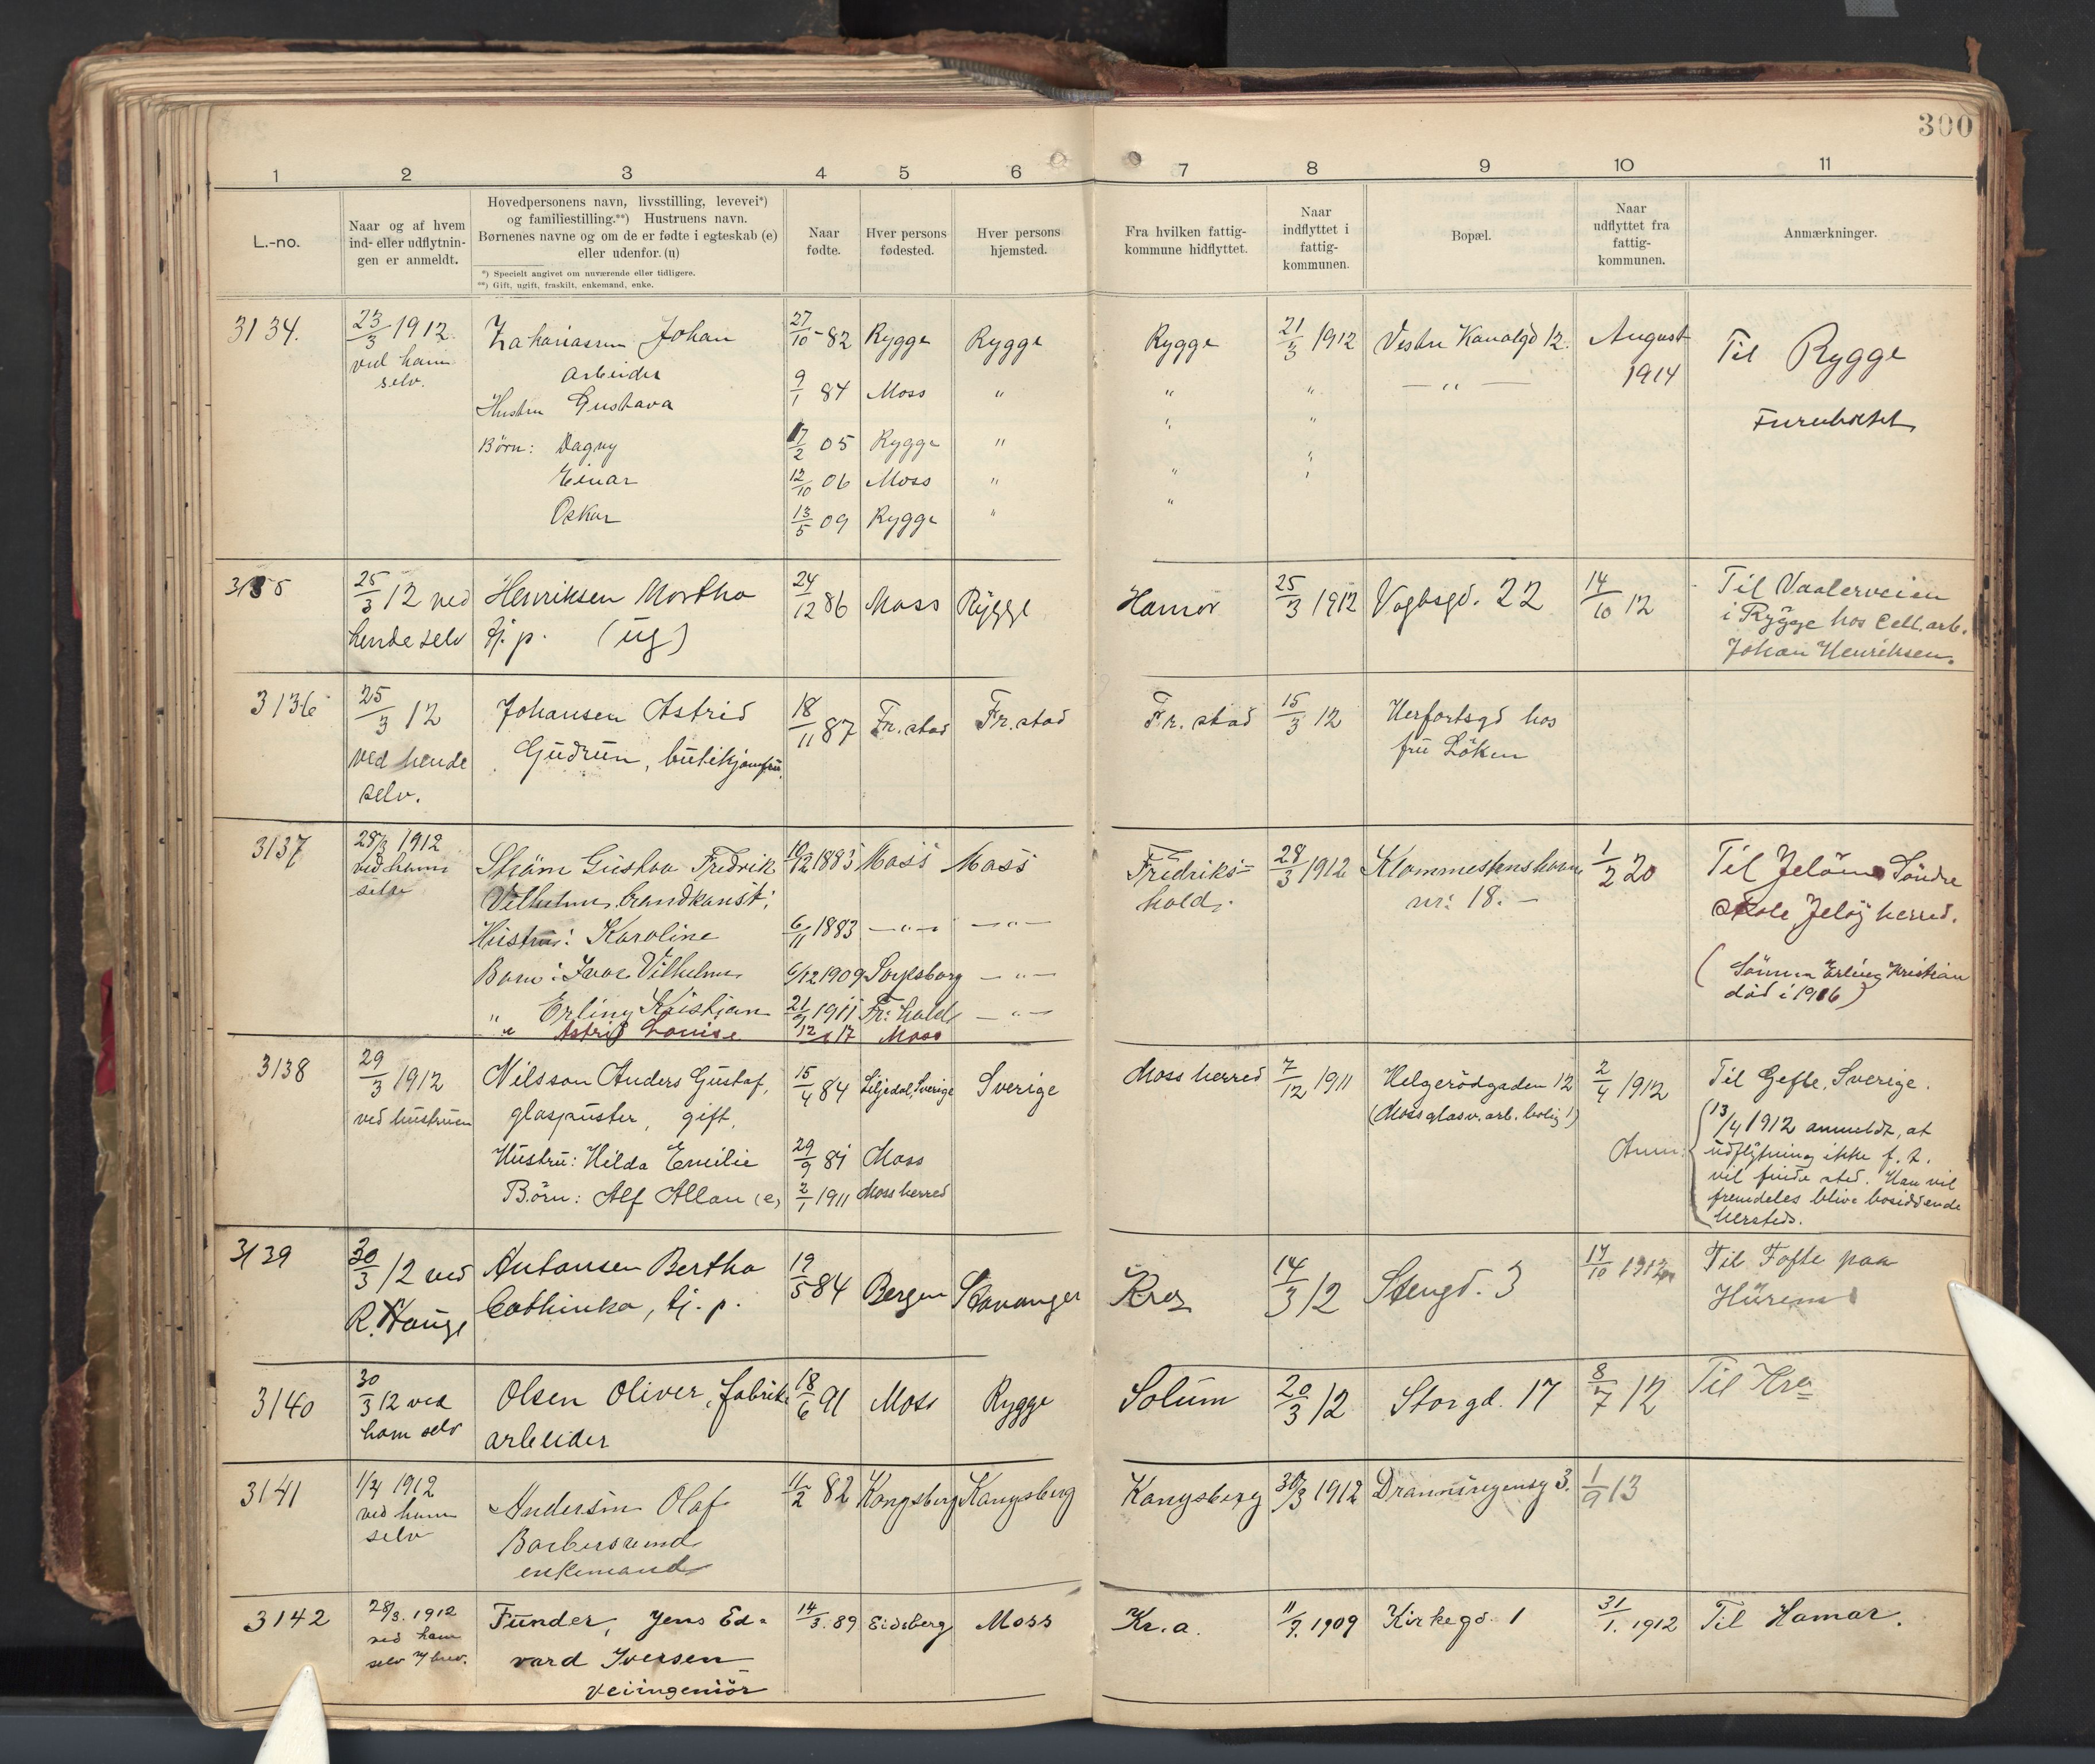 300
1 2 3 4 5 6 7 8 9 10 11
L.-no.
Naar og af hvem
ind- eller udflytnin-
gen er anmeldt.
Hovedpersonens navn, livsstilling, levevei*)
og familiestilling.**) Hustruens navn.
Børnenes navne og om de er fødte i egteskab (e)
eller udenfor. (u)
*) Specielt angivet om nuværende eller tidligere.
**) Gift, ugift, fraskilt, enkemand, enke.
Naar
fødte.
Hver persons
fødested.
Hver persons
hjemsted.
Fra hvilken fattig-
kommune hidflyttet.
Naar
indflyttet i
fattig-
kommunen.
Bopæl.
Naar
udflyttet fra
fattig-
kommunen.
Anmærkninger.
3134. 23/3 1912 Zakariassen Johan 27/10-82 Rygge Rygge Rygge 21/3 1912 Vestre Kanalgd 12. August Til Rygge
ved ham arbeider 1914
selv.
Hustru Gustava 9/1 84 Moss " " " — " —
Furuholtet
Børn: Dagny 17/2 05 Rygge " " "
Einar 12/10 06 Moss " " "
Oskar 13/5 09 Rygge " "
3135 25/3 12 ved Henriksen Martha 24/12 86 Moss Rygge Hamar 25/3 1912 Vogtsgd. 22 14/10 12 Til Vaalerveien
hende selv tj. p. (ug) i Rygge hos Cell. arb.
Johan Henriksen.
3136 25/3 12 Johansen Astrid 18/11 87 Fr.stad Fr.stad Fr.stad 15/3 12 Herfortsgd hos
ved hende Gudrun, butikjomfru. fru Löken
selv.
3137 28/3 1912 Ström Gustav Fredrik 10/12 1883 Moss Moss Fredriks- 28/3 1912 1/2 20 Til Jelöen Söndre
ved ham Vilhelm, hald. nr: 18. — skole Jelöy herred.
selv
Hustru: Karoline 6/11 1883 — " — — " —
Barn: Ivar Vilhelm 6/12 1909 Sarpsborg — " — (Sönnen Erling Kristian
" Erling Kristian 1911 Fr: hald — " — död i 1916)
" Astrid Louise 17 Moss
3138 29/3 1912 Nilsson Anders Gustaf, 15/4 84 Liljedal, Sverige Sverige Moss herred 7/12 1911 Helgerödgaden 12 2/4 1912 Til Gefle, Sverige.
ved hustruen glaspuster, gift. (Moss glasv. arb. bolig 1)
13/4 1912 anmeldt, at
Hustru: Hilda Emilie 29/9 81 Moss Anm: udflytning ikke f. t.
vil finde sted. Han vil
Börn: Alf Allan (e) 2/1 1911 Moss herred fremdeles blive bosiddende
hersteds.
3139 30/3 12 ved Antonsen Bertha 19/5 84 Bergen Stavanger Kra 14/3 12 Stengd. 3 17/10 1912 Til Tofte paa
R. Hauge Cathinka, tj. p. Hurum
3140 30/3 12 ved Olsen Oliver, fabrik- 18/6 91 Moss Rygge Solum 20/3 12 Storgd. 17 8/7 12 Til Kra
ham selv arbeider
3141 1/4 1912 Andersen Olaf 11/2 82 Kongsberg Kongsberg Kongsberg 30/3 1912 Dronningensg 3. 1/9 13
ved ham Barbersvend
selv enkemand
3142 28/3. 1912 Funder, Jens Ed- 14/3. 89 Eidsberg Moss Kr.a. 11/9. 1909 Kirkegd. 1 31/1. 1912 Til Hamar.
ved ham vard Iversen
selv brev. Veiingeniör